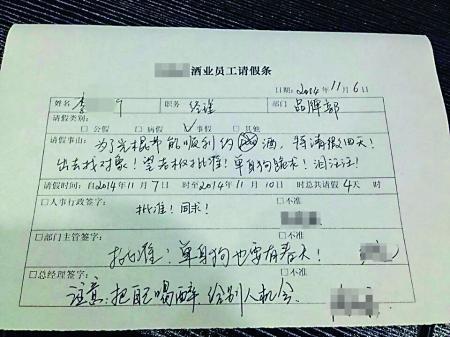 酒业员工请假条
日期：2014年11月6日
姓名 李 职务 经理 部门 品牌部
请假类别：
□ 公假 □ 病假 ☑ 事假 □ 其他
请假事由：为了光棍节能顺利约酒，特请假四天！
出去找对象！望老板批准！单身狗跪求！泪汪汪！
请假时间：自2014年11月7日 时至2014年11月10日 时总共请假4天 时
□人事行政签字： □不准
批准！同求！
□部门主管签字： □不准
批准！单身狗也要有春天！
□总经理签字： □不准
注意：把自己喝醉，给别人机会。